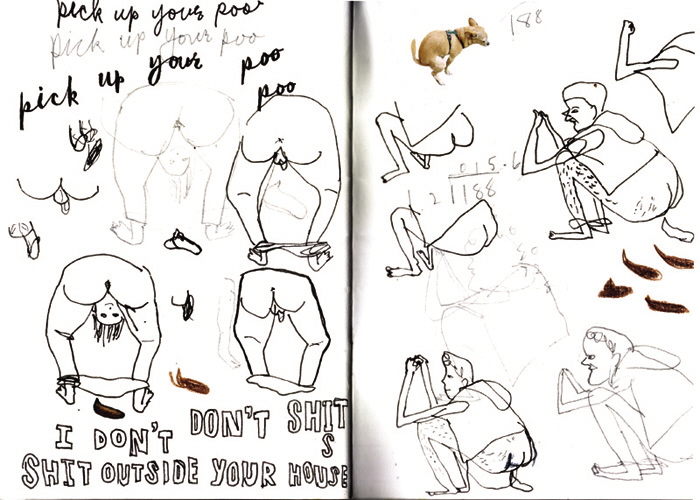 pick up your poo
pick up your poo
pick up your poo
poo
188
015.6
12 188
I DON'T DON'T SHIT
S
SHIT OUTSIDE YOUR HOUSE